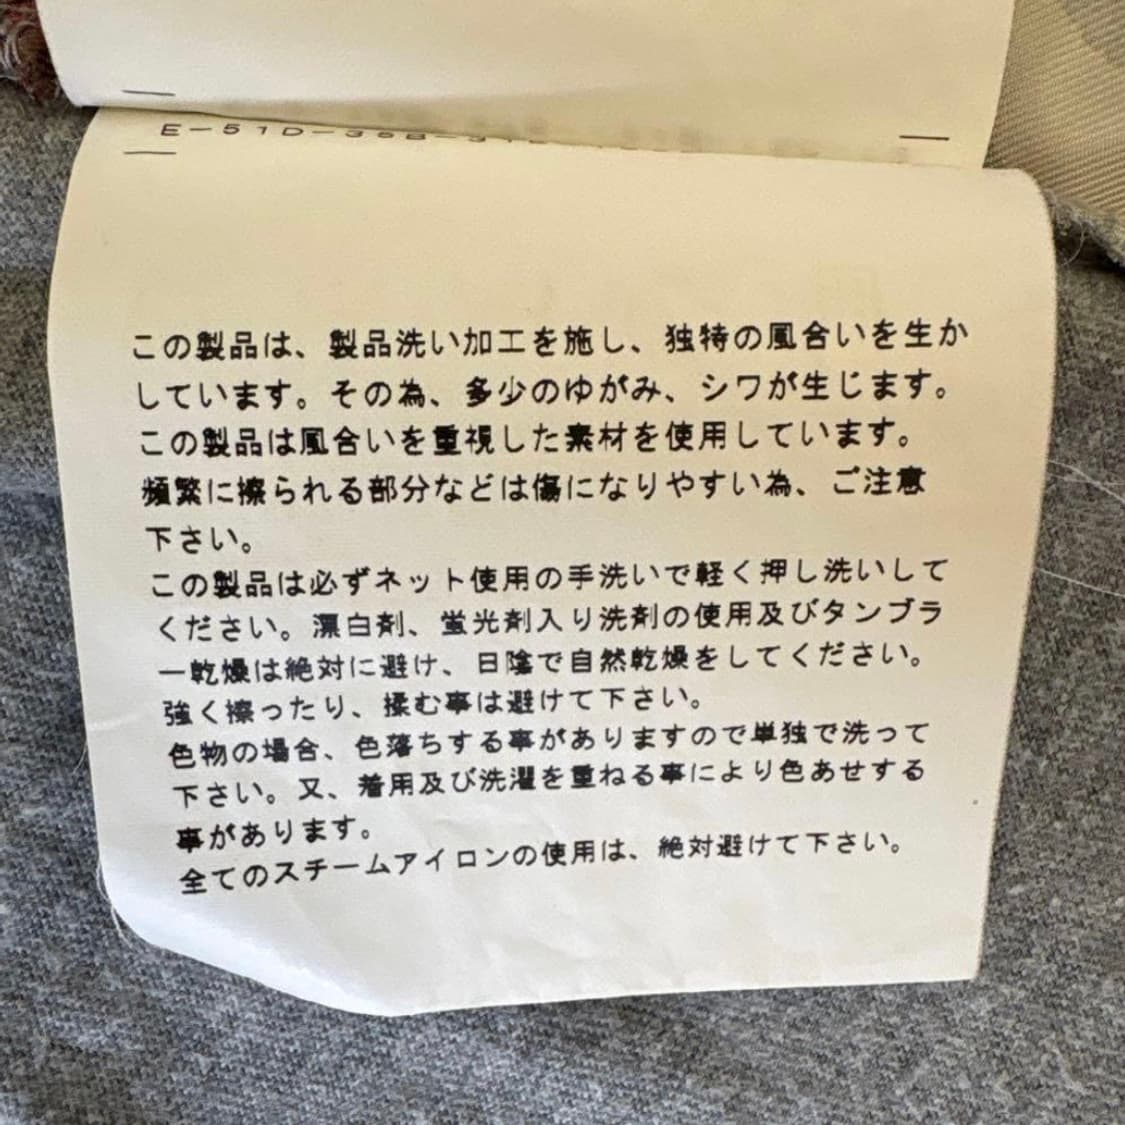 E-51D-35B-
この製品は、製品洗い加工を施し、独特の風合いを生か
しています。その為、多少のゆがみ、シワが生じます。
この製品は風合いを重視した素材を使用しています。
頻繁に擦られる部分などは傷になりやすい為、ご注意
下さい。
この製品は必ずネット使用の手洗いで軽く押し洗いして
ください。漂白剤、蛍光剤入り洗剤の使用及びタンブラ
ー乾燥は絶対に避け、日陰で自然乾燥をしてください。
強く擦ったり、揉む事は避けて下さい。
色物の場合、色落ちする事がありますので単独で洗って
下さい。又、着用及び洗濯を重ねる事により色あせする
事があります。
全てのスチームアイロンの使用は、絶対避けて下さい。